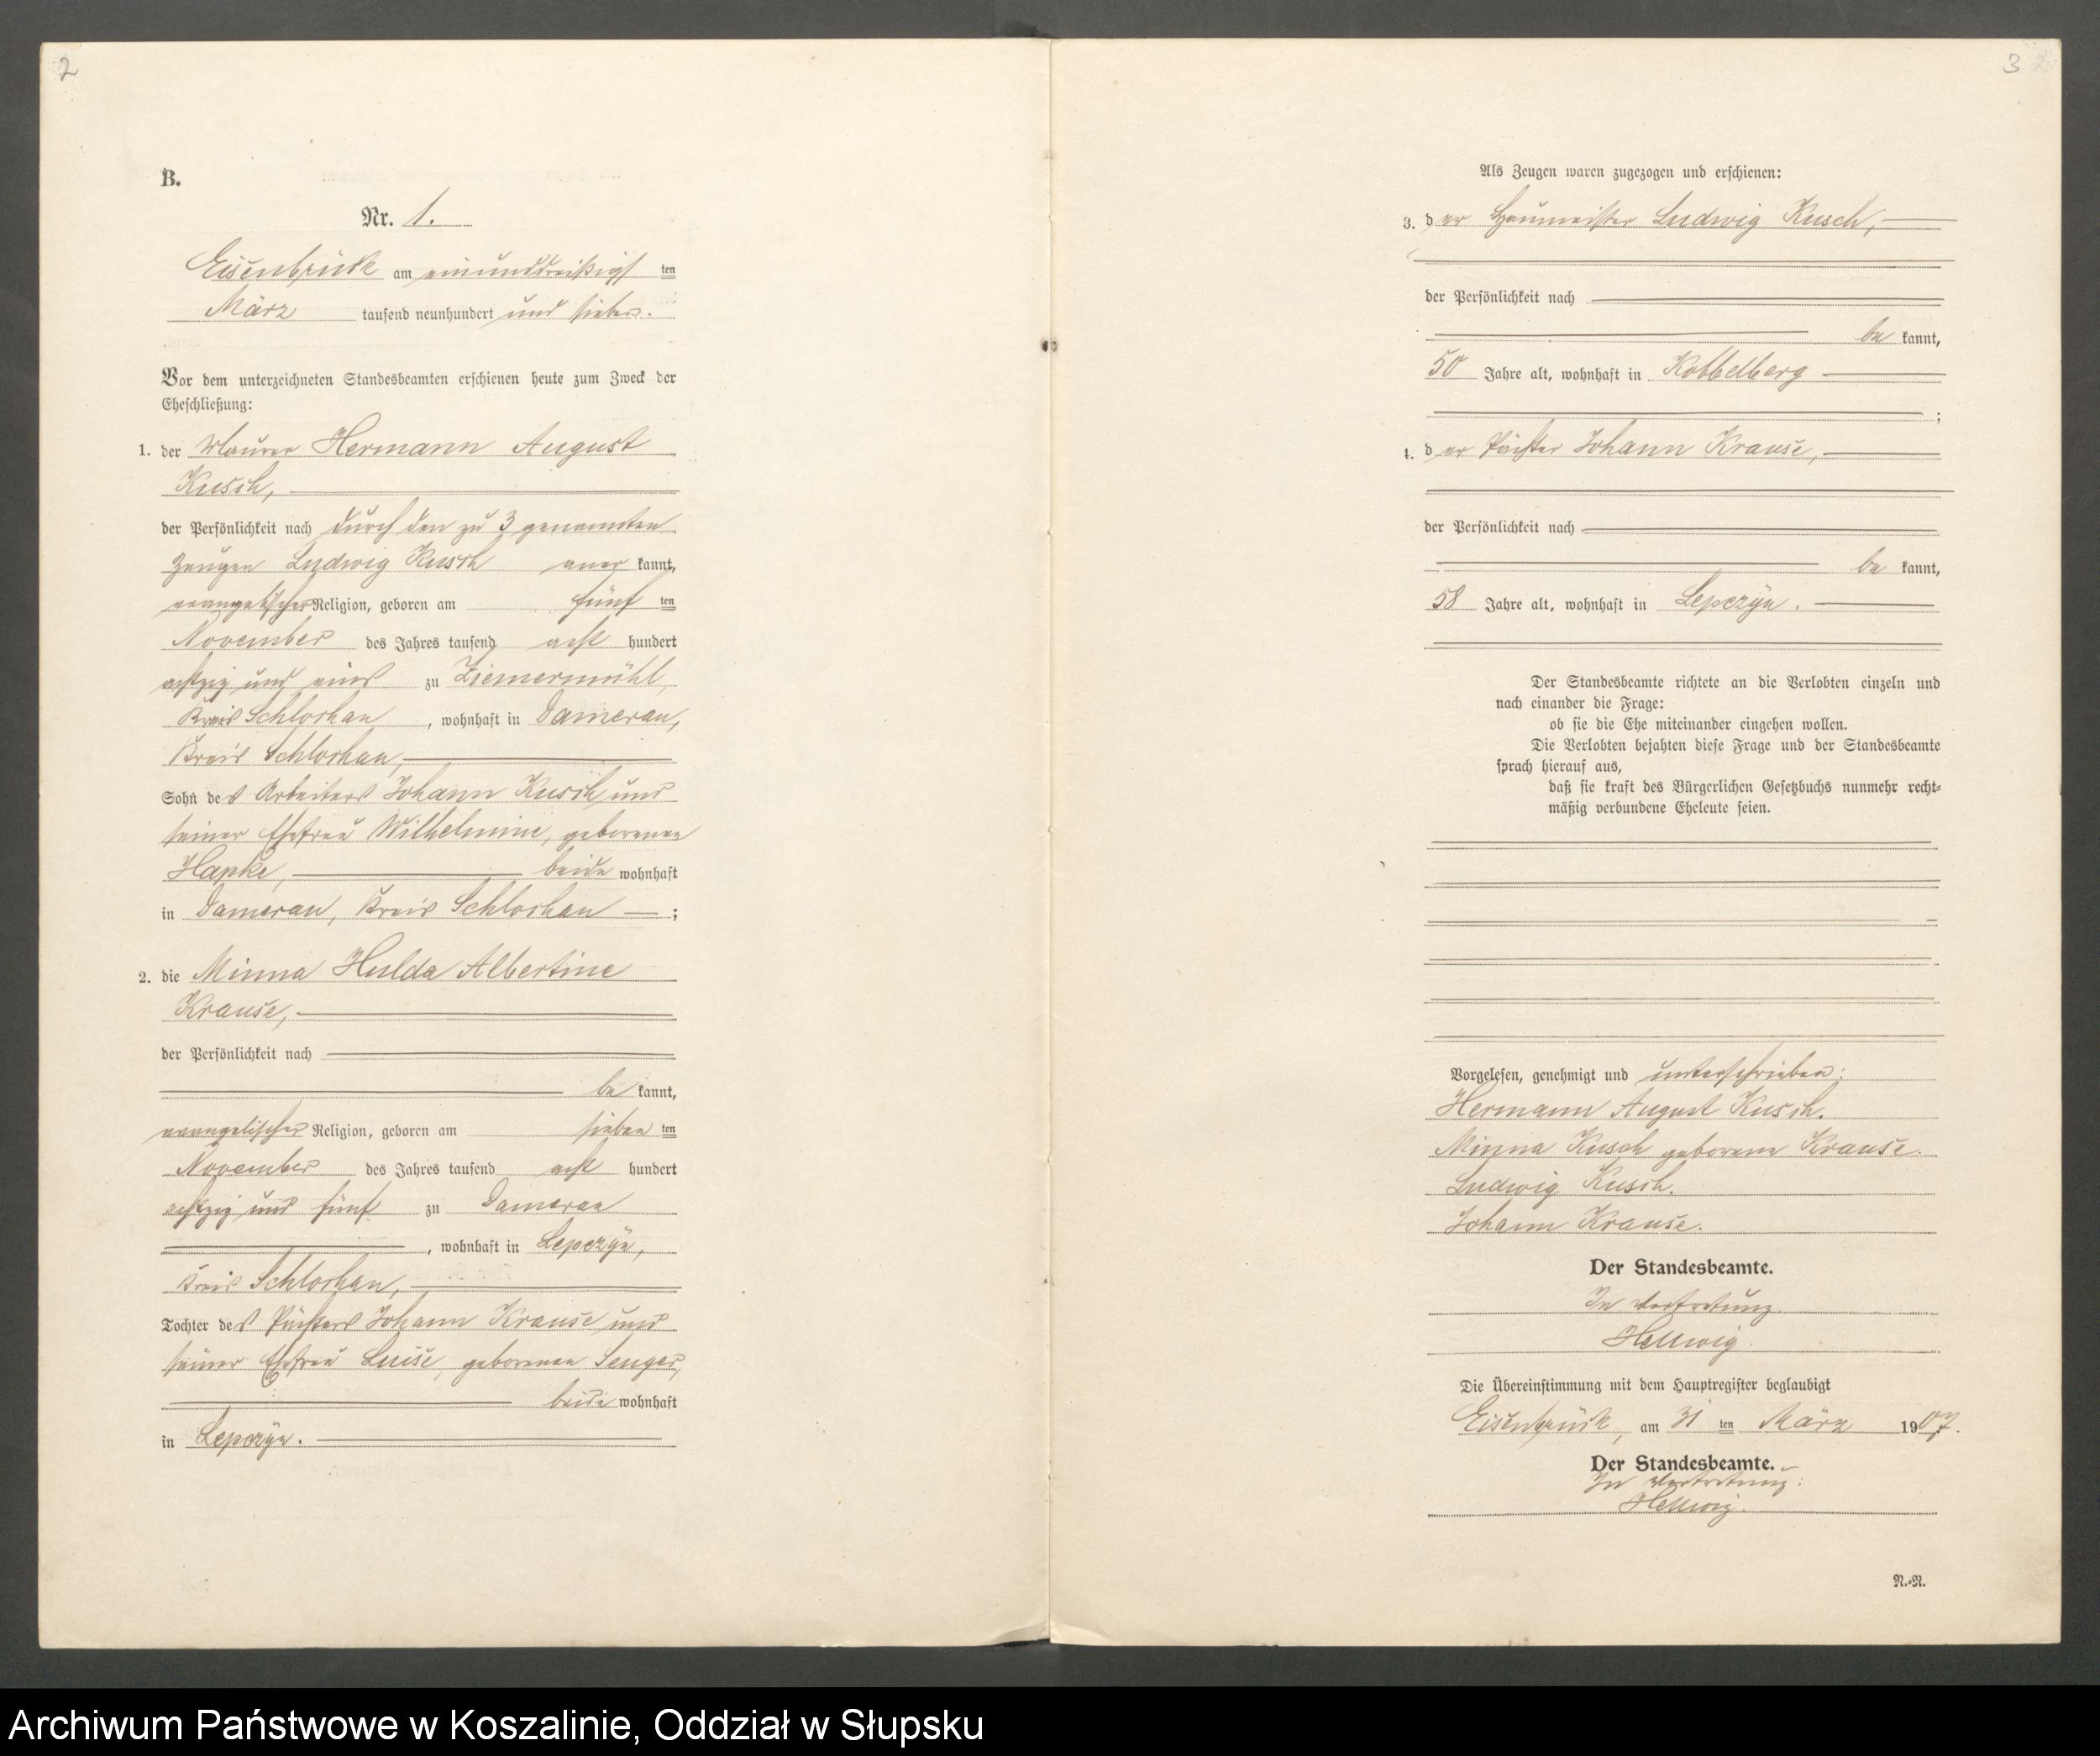 2
B.
Nr. 1.
Eisenbrück am einunddreißigsten
März tausend neunhundert und sieben.
Vor dem unterzeichneten Standesbeamten erschienen heute zum Zweck der
Eheschließung:
1. der Maurer Hermann August
Kusch,
der Persönlichkeit nach durch den zu 3 genannten
Zeugen Ludwig Kusch aner kannt,
evangelischer Religion, geboren am fünf ten
November des Jahres tausend acht hundert
achtzig und eins zu Ziemermühl,
Kreis Schlochau, wohnhaft in Damerau,
Kreis Schlochau,
Sohn des Arbeiters Johann Kusch und
seiner Ehefrau Wilhelmine, geborenen
Hapke, beide wohnhaft
in Damerau, Kreis Schlochau ;
2. die Minna Hulda Albertine
Krause,
der Persönlichkeit nach
be kannt,
evangelischer Religion, geboren am sieben ten
November des Jahres tausend acht hundert
achtzig und fünf zu Damerau
, wohnhaft in Lepczyn,
Kreis Schlochau,
Tochter des Pächters Johann Krause und
seiner Ehefrau Luise, geborenen Senger,
beide wohnhaft
in Lepczyn.
3
Als Zeugen waren zugezogen und erschienen:
3. der Haumeister Ludwig Kusch,
der Persönlichkeit nach
be kannt,
50 Jahre alt, wohnhaft in Kobbelberg
;
4. der Pächter Johann Krause,
der Persönlichkeit nach
be kannt,
58 Jahre alt, wohnhaft in Lepczyn.
Der Standesbeamte richtete an die Verlobten einzeln und
nach einander die Frage:
ob sie die Ehe miteinander eingehen wollen.
Die Verlobten bejahten diese Frage und der Standesbeamte
sprach hierauf aus,
daß sie kraft des Bürgerlichen Gesetzbuchs nunmehr recht-
mäßig verbundene Eheleute seien.
Vorgelesen, genehmigt und unterschrieben:
Hermann August Kusch.
Minna Kusch geborene Krause.
Ludwig Kusch.
Johann Krause.
Der Standesbeamte.
In Vertretung
Hellwig.
Die Übereinstimmung mit dem Hauptregister beglaubigt
Eisenbrück, am 31 ten März 1907.
Der Standesbeamte.
In Vertretung:
Hellwig.
N.-N.
Archiwum Państwowe w Koszalinie, Oddział w Słupsku